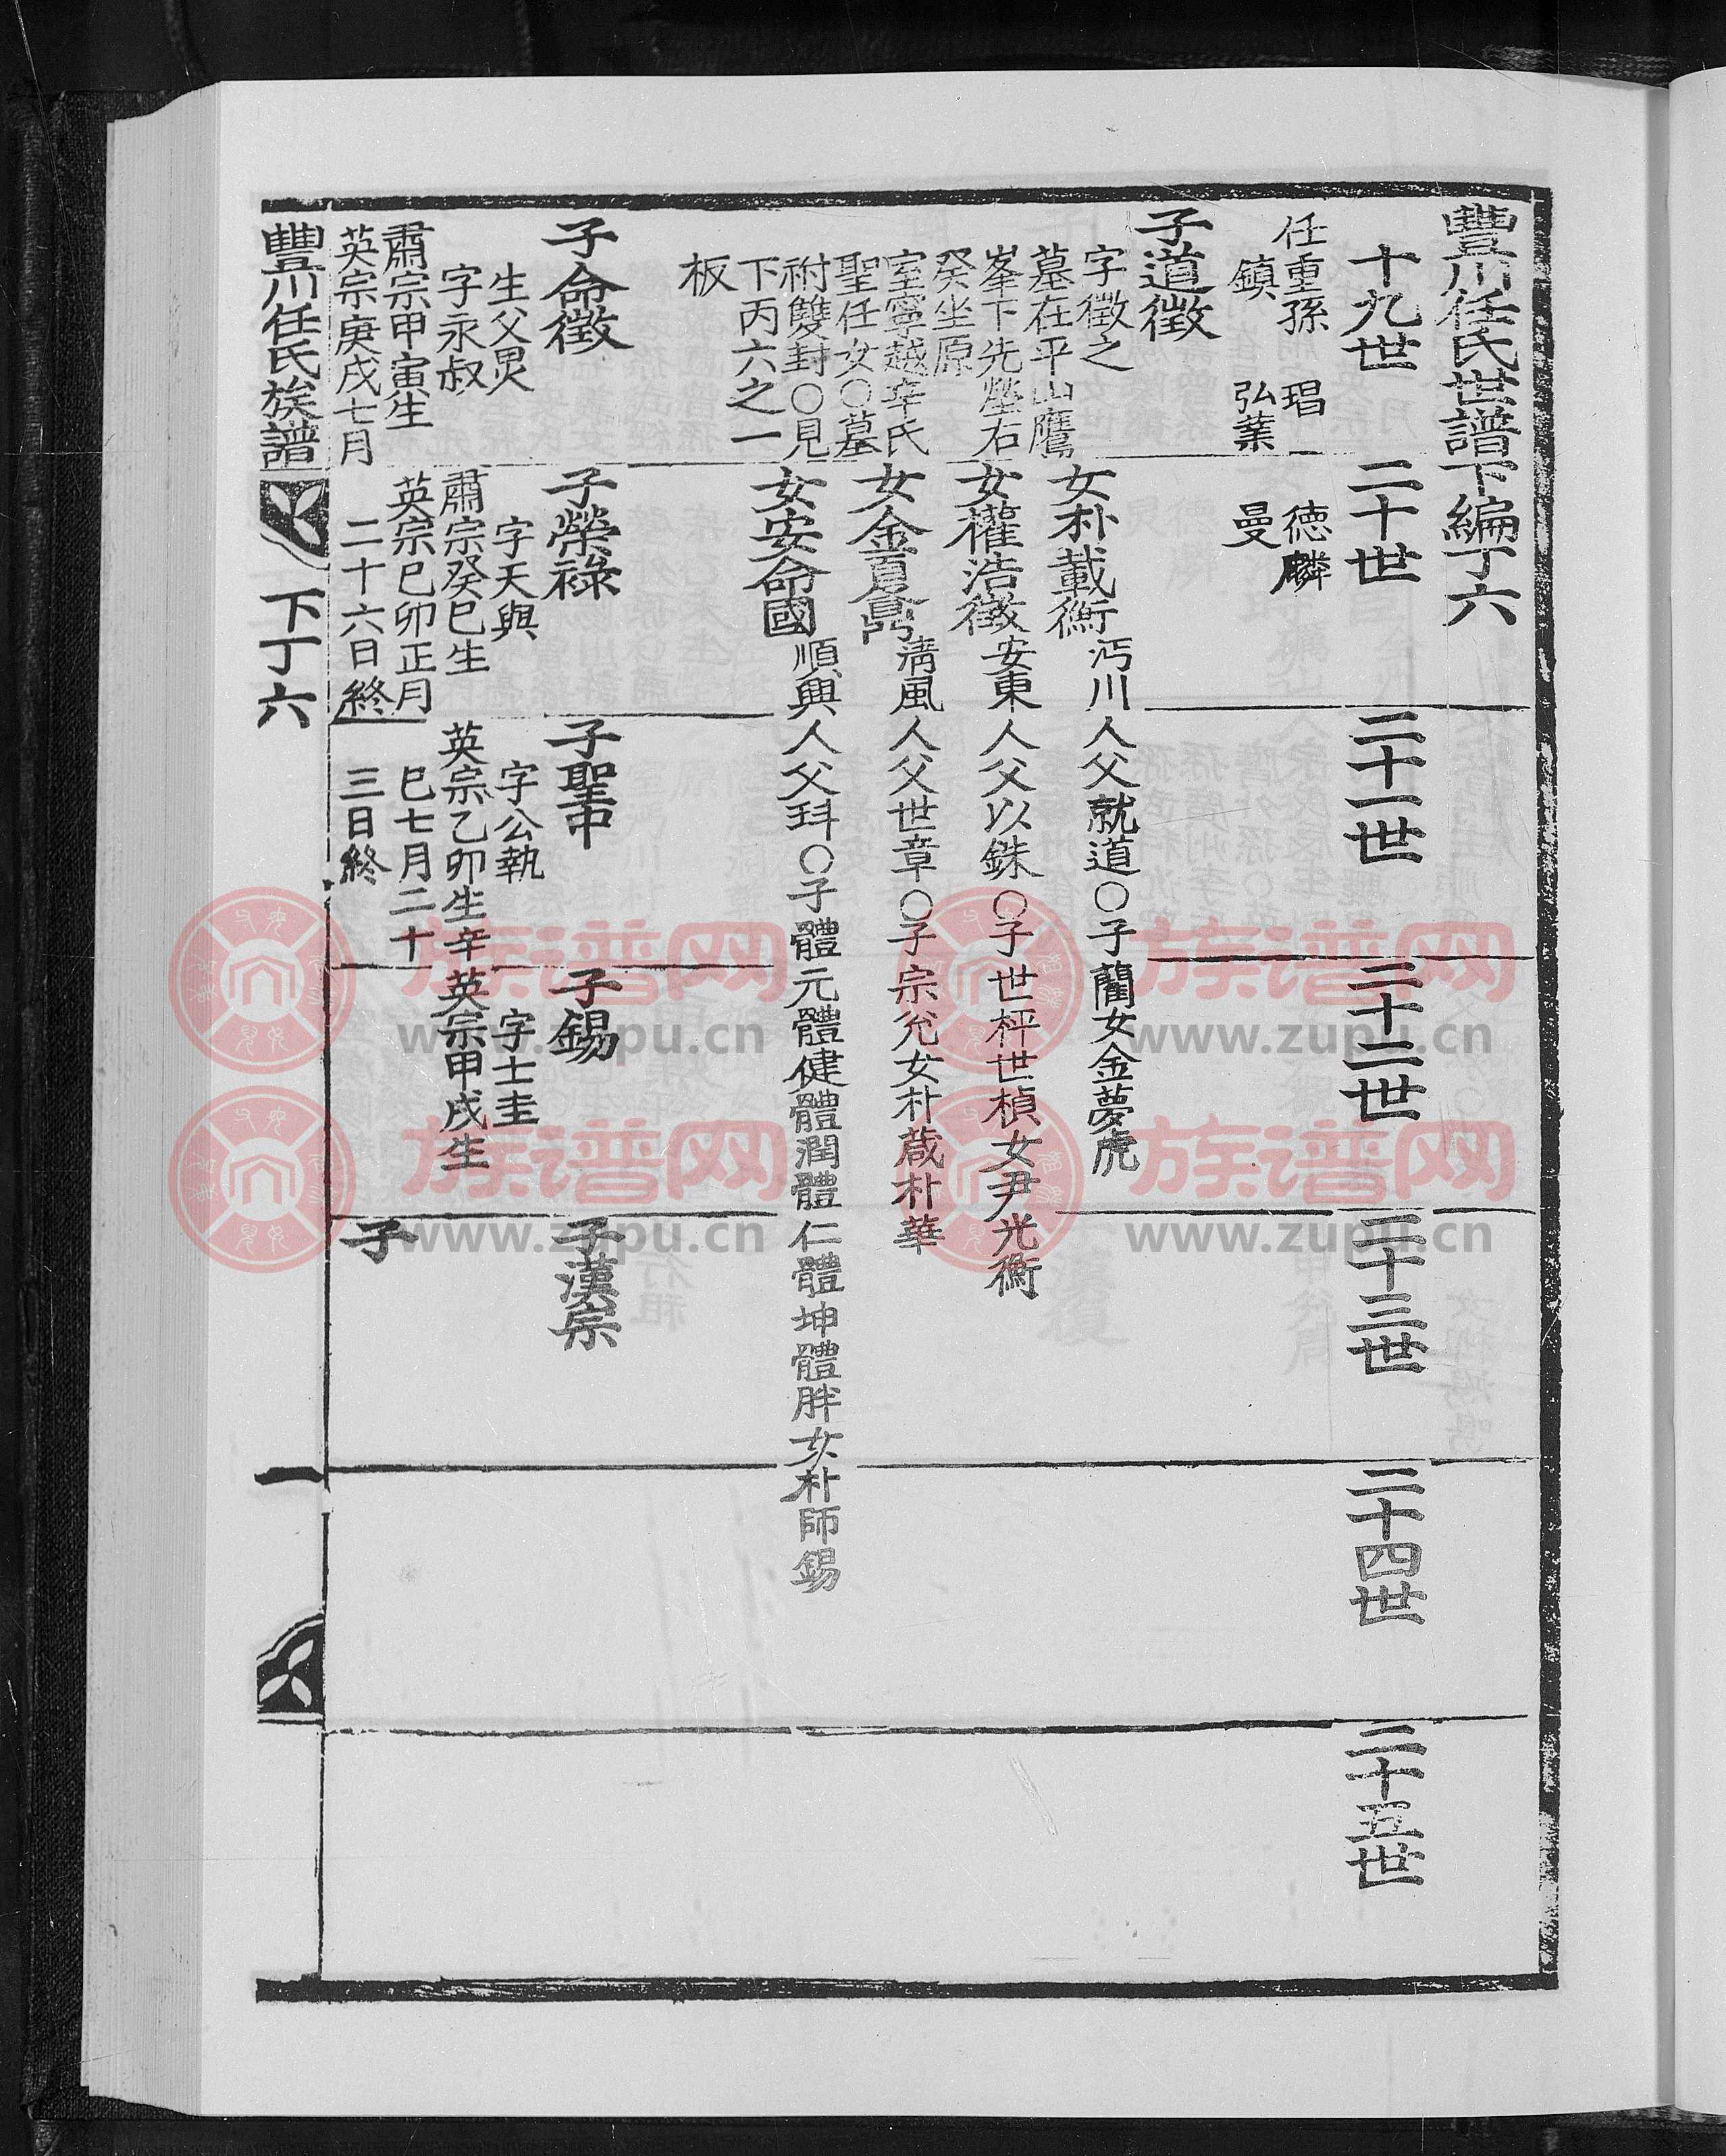 豐川任氏世譜下編丁六
十九世
二十世
二十一世
二十二世
二十三世
二十四世
二十五世
任重孫 琩 德麟
鎮 弘業 曼
子道徵
字徵之
墓在平山鷹
峯下先塋右
癸坐原
室寧越辛氏
聖任女○墓
祔雙封○見
下丙六之一
板
女朴載衡 沔川人父就道○子蘭女金夢虎
女權浩徵 安東人父以銖○子世枰世楨女尹光衡
女金夏鼎 淸風人父世章○子宗兊女朴葴朴華
女安命國 順興人父㺩○子體元體健體潤體仁體坤體胖女朴師錫
子命徵
生父炅
字永叔
肅宗甲寅生
英宗庚戌七月
子榮祿
字天與
肅宗癸巳生
英宗己卯正月
二十六日終
子聖中
字公執
英宗乙卯生辛
巳七月二十
三日終
子錫
字士圭
英宗甲戌生
子漢宗
子
豐川任氏族譜 下丁六 一
族谱网
www.zupu.cn
族谱网
www.zupu.cn
族谱网
www.zupu.cn
族谱网
www.zupu.cn